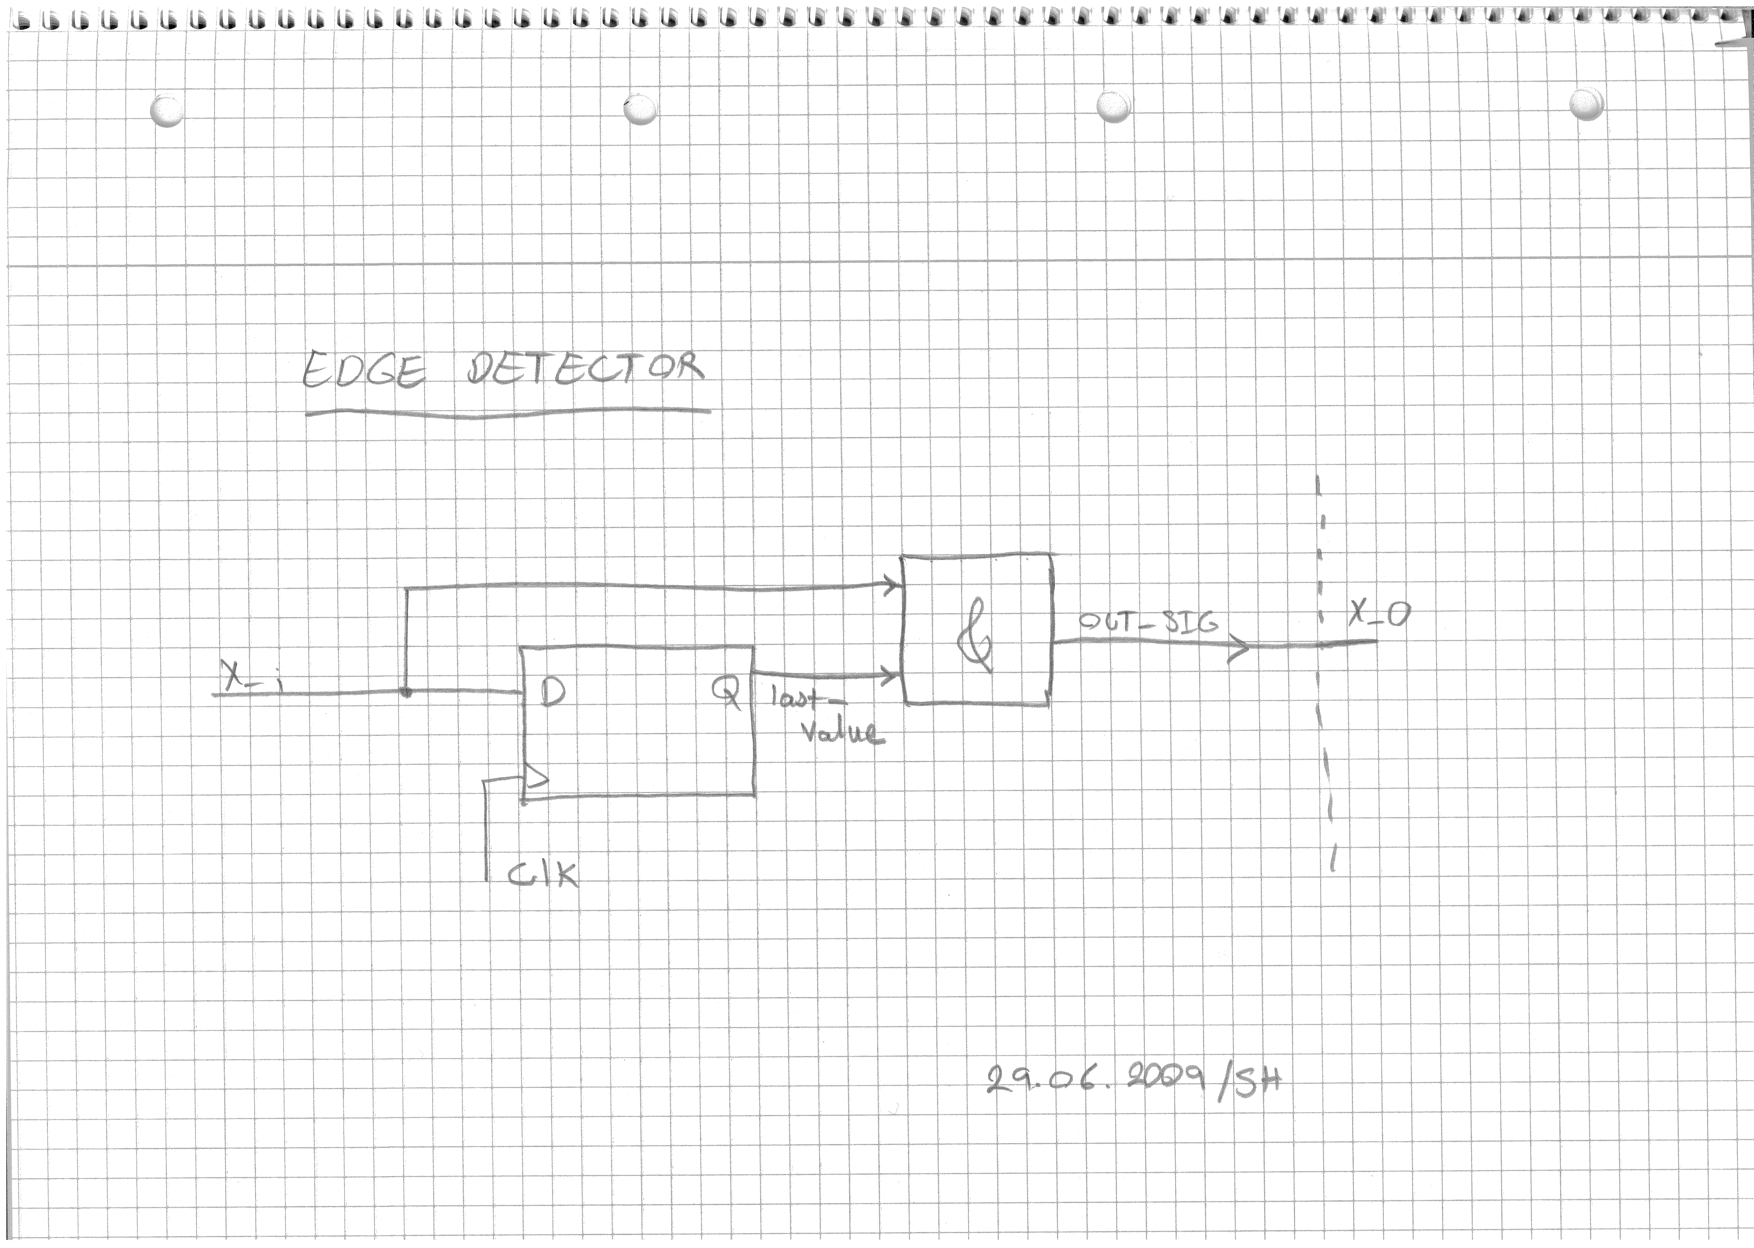 EDGE DETECTOR
X_i
D
Q
last_
value
&
OUT_SIG
X_O
Clk
29.06.2009/SH